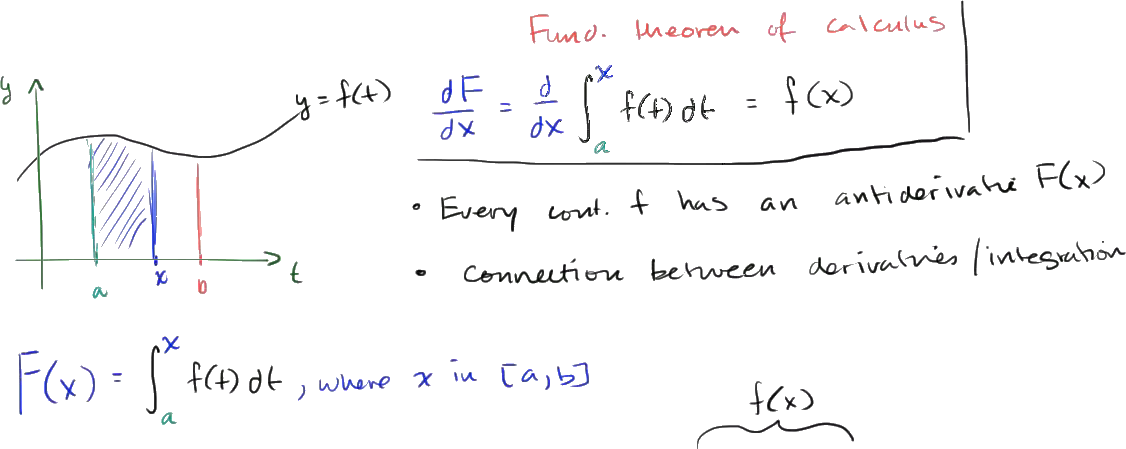 Fund. theorem of calculus
y
y = f(t)
dF/dx = d/dx ∫_a^x f(t) dt = f(x)
• Every cont. f has an antiderivative F(x)
• connection between derivatives / integration
a x b t
F(x) = ∫_a^x f(t) dt, where x in [a,b]
f(x)